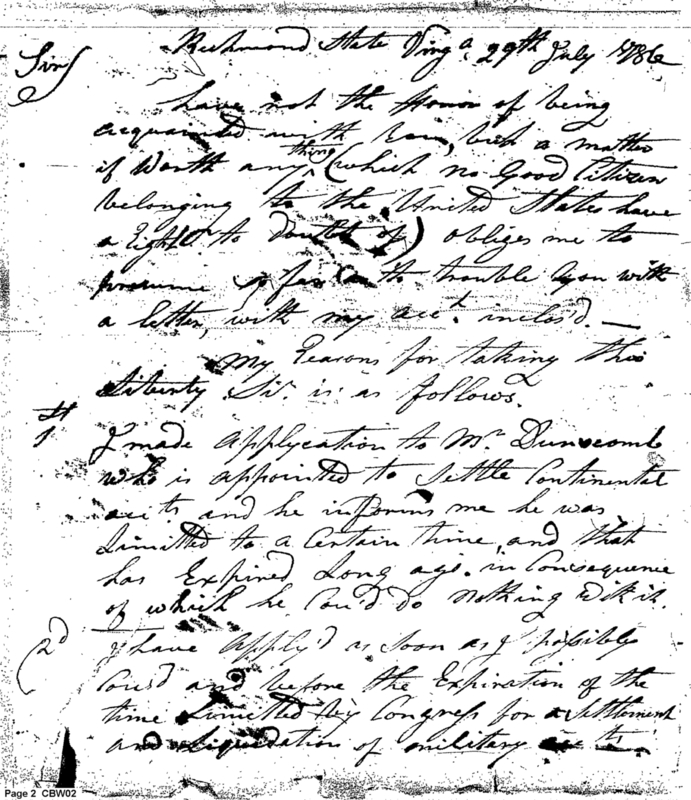 Richmond State Virga. 29th July 1786
Sir
have not the Honor of being
acquainted with You, but a matter
if Worth any thing (which no Good Citizen
belonging to the United States have
a right to doubt of) obliges me to
presume so far to trouble you with
a letter, with my acct. inclos'd. —
My Reasons for taking this
Liberty Sir. is as follows.
1st I made Applycation to Mr. Dunscomb
who is appointed to Settle Continental
accts and he informs me he was
Limitted to a Certain time, and that
has Expired Long ago. in Consequence
of which he Cou'd do Nothing with it.
2d I have Apply'd as soon as I possibly
Cou'd and before the Expiration of the
time Limitted by Congress for a Settlement
and Liquidation of military accts
Page 2 CBW02